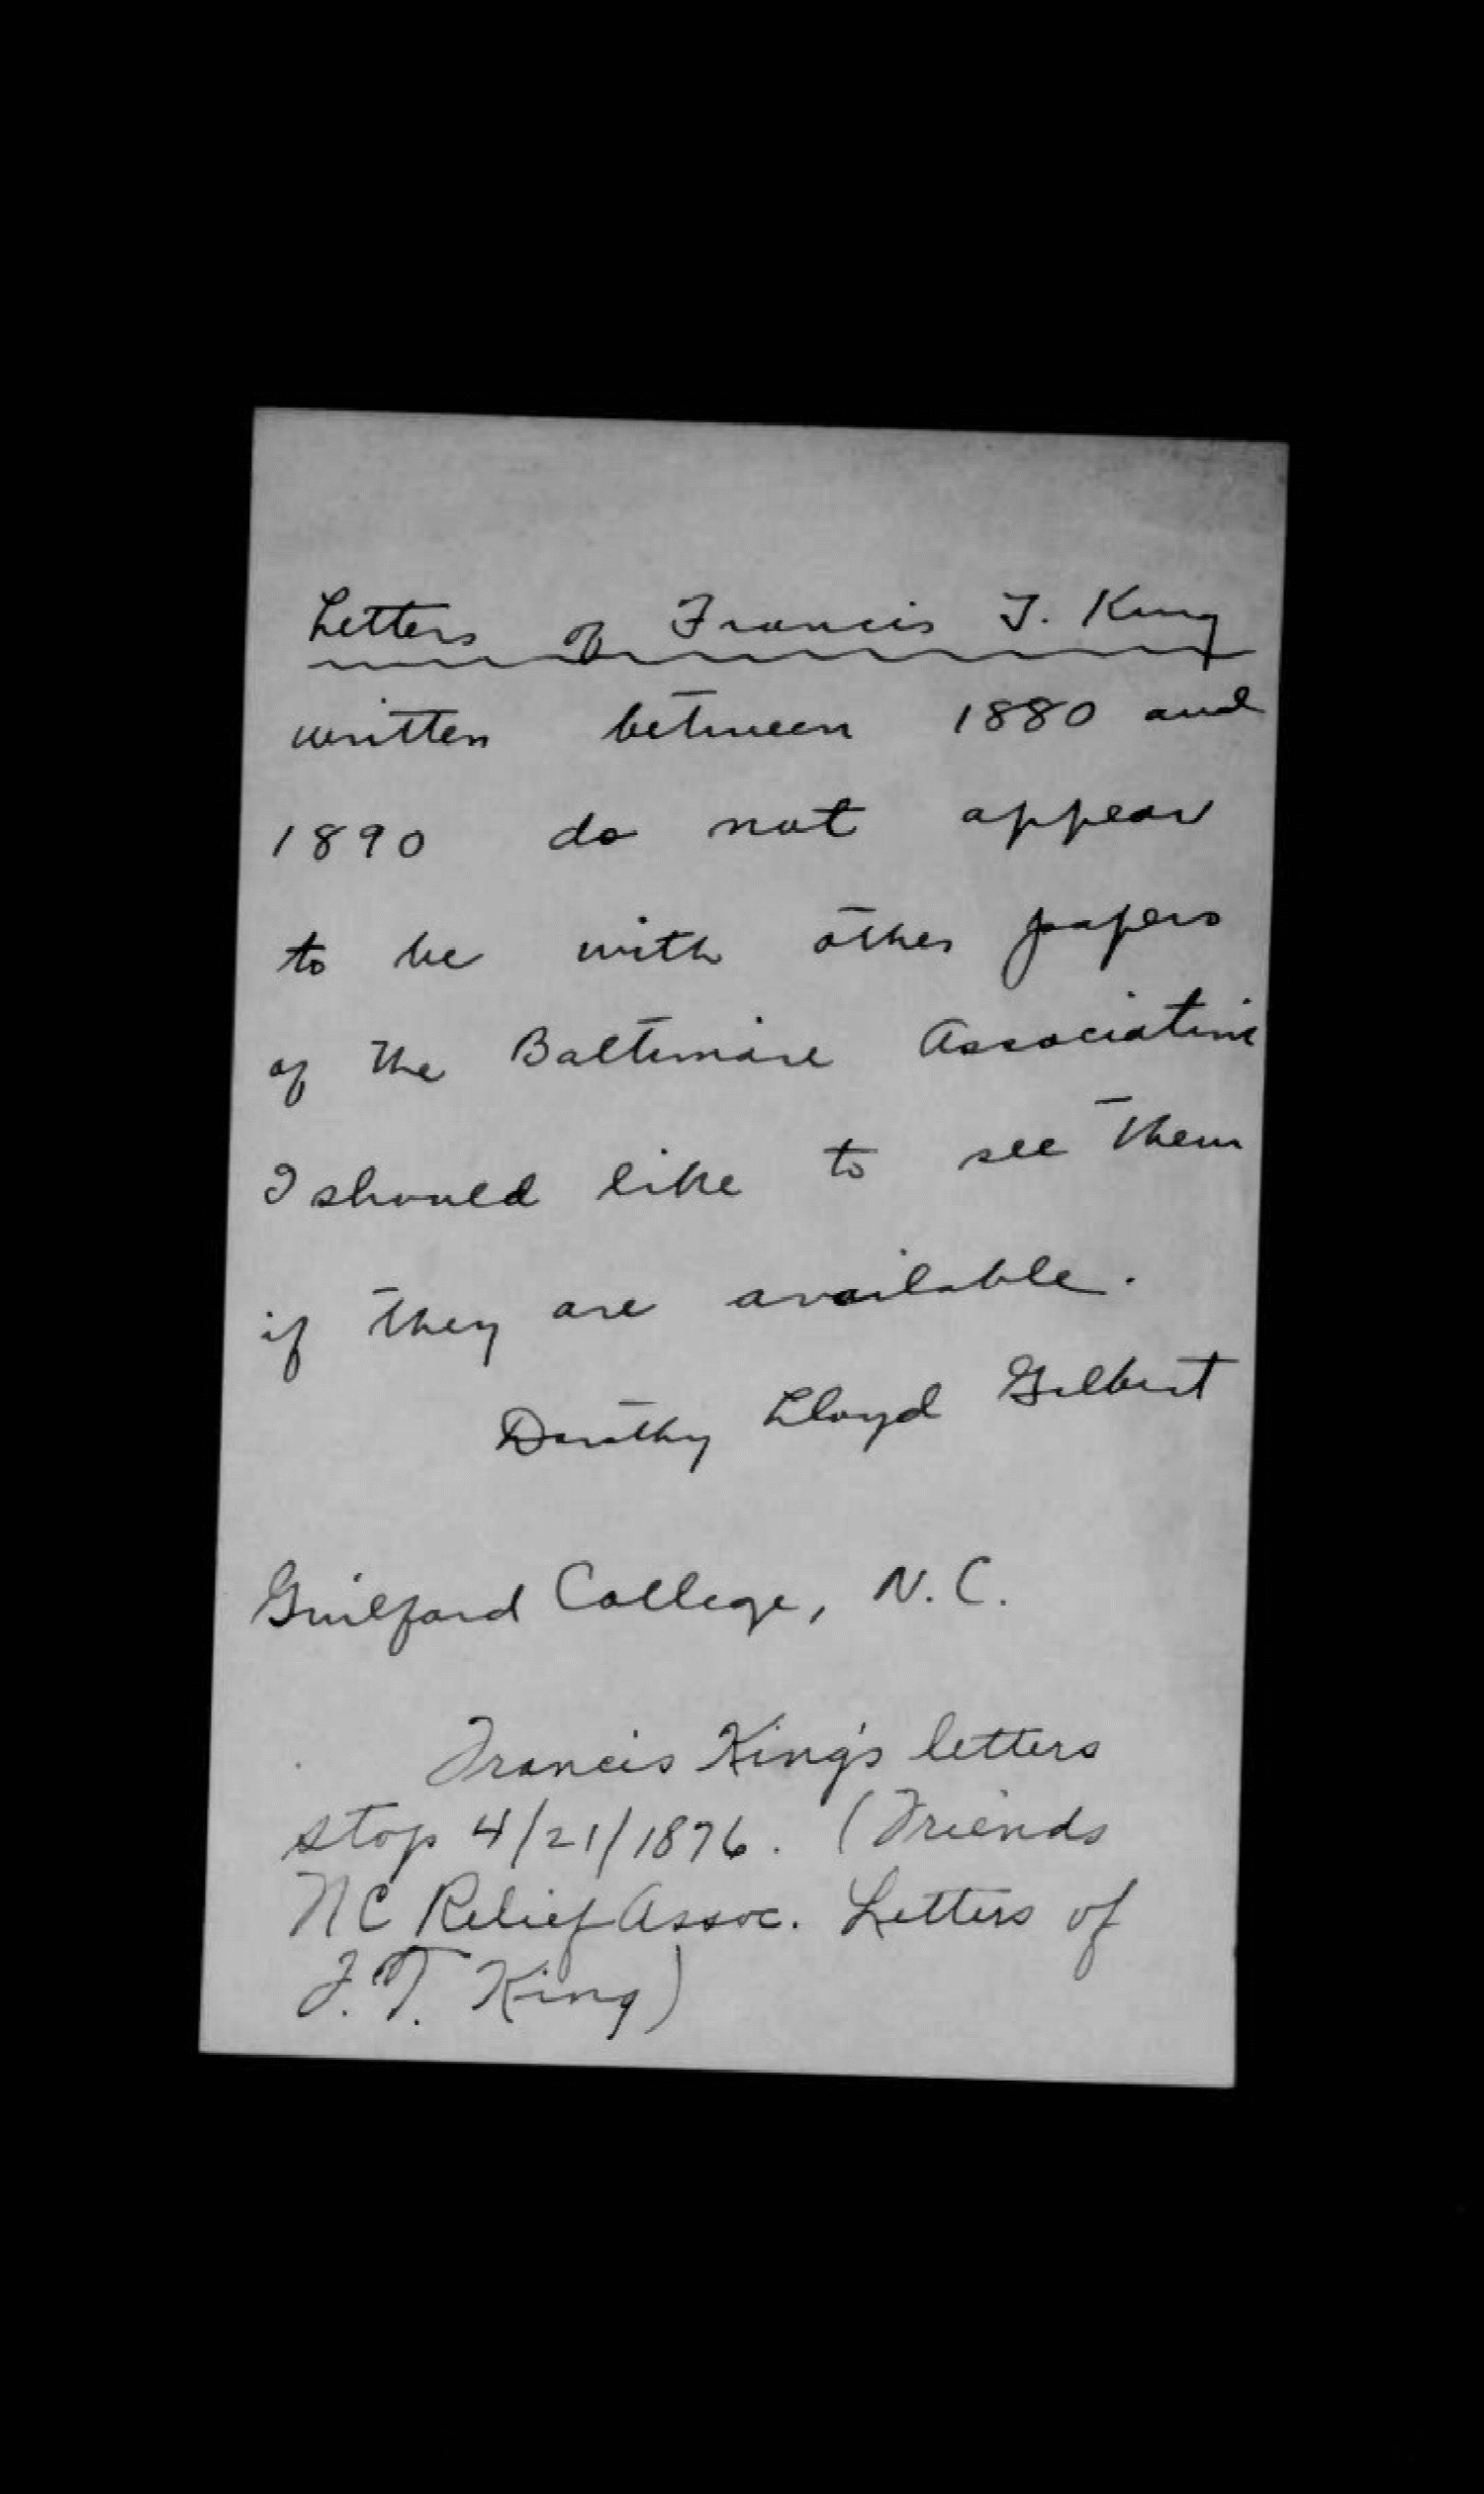 Letters of Francis T. King
written between 1880 and
1890 do not appear
to be with other papers
of the Baltimore Association
I should like to see them
if they are available.
Dorothy Lloyd Gilbert
Guilford College, N.C.
Francis King's letters
stop 4/21/1876. (Friends
NC Relief Assoc. Letters of
F.T. King)